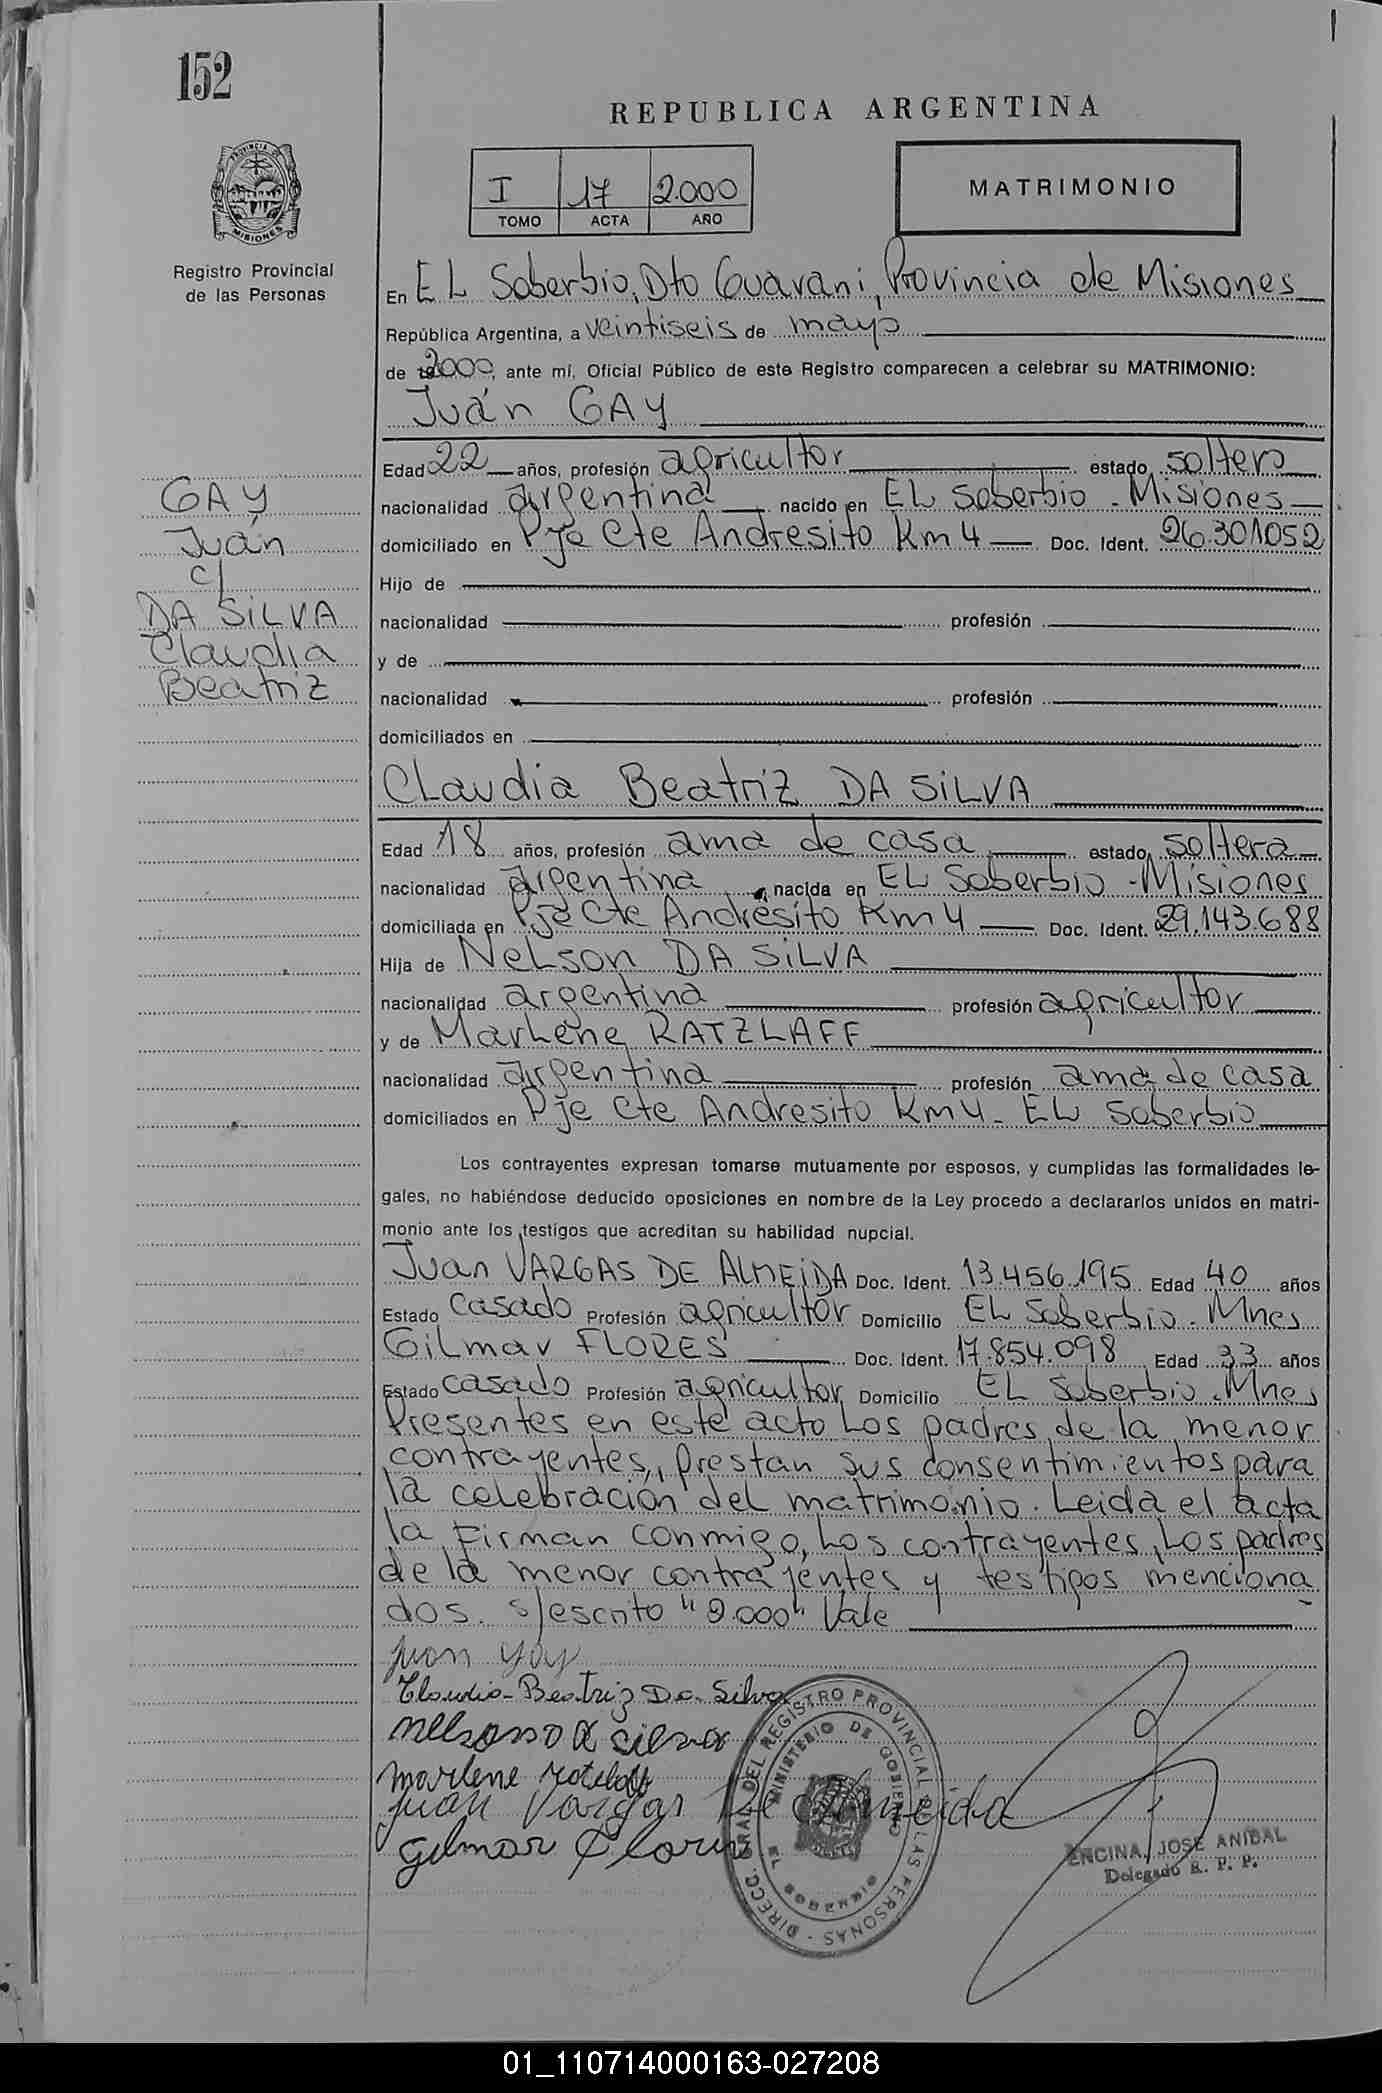 152
REPUBLICA ARGENTINA
I 17 2.000
TOMO ACTA AÑO
MATRIMONIO
PROVINCIA DE MISIONES
Registro Provincial
de las Personas
En EL Soberbio, Dto Guarani, Provincia de Misiones
República Argentina, a veintiseis de mayo
de 2000, ante mí, Oficial Público de este Registro comparecen a celebrar su MATRIMONIO:
Juán GAY
Edad 22 años, profesión agricultor estado soltero
nacionalidad argentina nacido en EL Soberbio - Misiones
domiciliado en Pje Cte Andresito Km 4 Doc. Ident. 26.301052
Hijo de
nacionalidad profesión
y de
nacionalidad profesión
domiciliados en
GAY
Juán
c/
DA SiLVA
Claudia
Beatriz
Claudia Beatriz DA SiLVA
Edad 18 años, profesión ama de casa estado soltera
nacionalidad argentina nacida en EL Soberbio - Misiones
domiciliada en Pje Cte Andresito Km 4 Doc. Ident. 29.143.688
Hija de NeLson DA SiLVA
nacionalidad argentina profesión agricultor
y de MarLene RATZLAFF
nacionalidad argentina profesión ama de casa
domiciliados en Pje Cte Andresito Km 4 - EL Soberbio
Los contrayentes expresan tomarse mutuamente por esposos, y cumplidas las formalidades le-
gales, no habiéndose deducido oposiciones en nombre de la Ley procedo a declararlos unidos en matri-
monio ante los testigos que acreditan su habilidad nupcial.
Juan VARGAS DE ALMEiDA Doc. Ident. 13.456.195 Edad 40 años
Estado casado Profesión agricultor Domicilio EL Soberbio - Mnes
GiLmar FLORES Doc. Ident. 17.854.098 Edad 33 años
Estado casado Profesión agricultor Domicilio EL Soberbio - Mnes
Presentes en este acto Los padres de la menor
contrayentes, prestan sus consentimientos para
la celebración del matrimonio. Leida el acta
la Firman conmigo, Los contrayentes, Los padres
de la menor contrayentes y testigos menciona
dos. s/escrito "2.000" Vale
juan gay
Claudia Beatriz Da Silva
marlene
juan Vargas De Almeida
Gilmar Flores
DIRECC. GRAL. DEL REGISTRO PROVINCIAL DE LAS PERSONAS -
MINISTERIO DE GOBIERNO
EL SOBERBIO
ENCINA, JOSE ANIBAL
Delegado R. P. P.
01_110714000163-027208